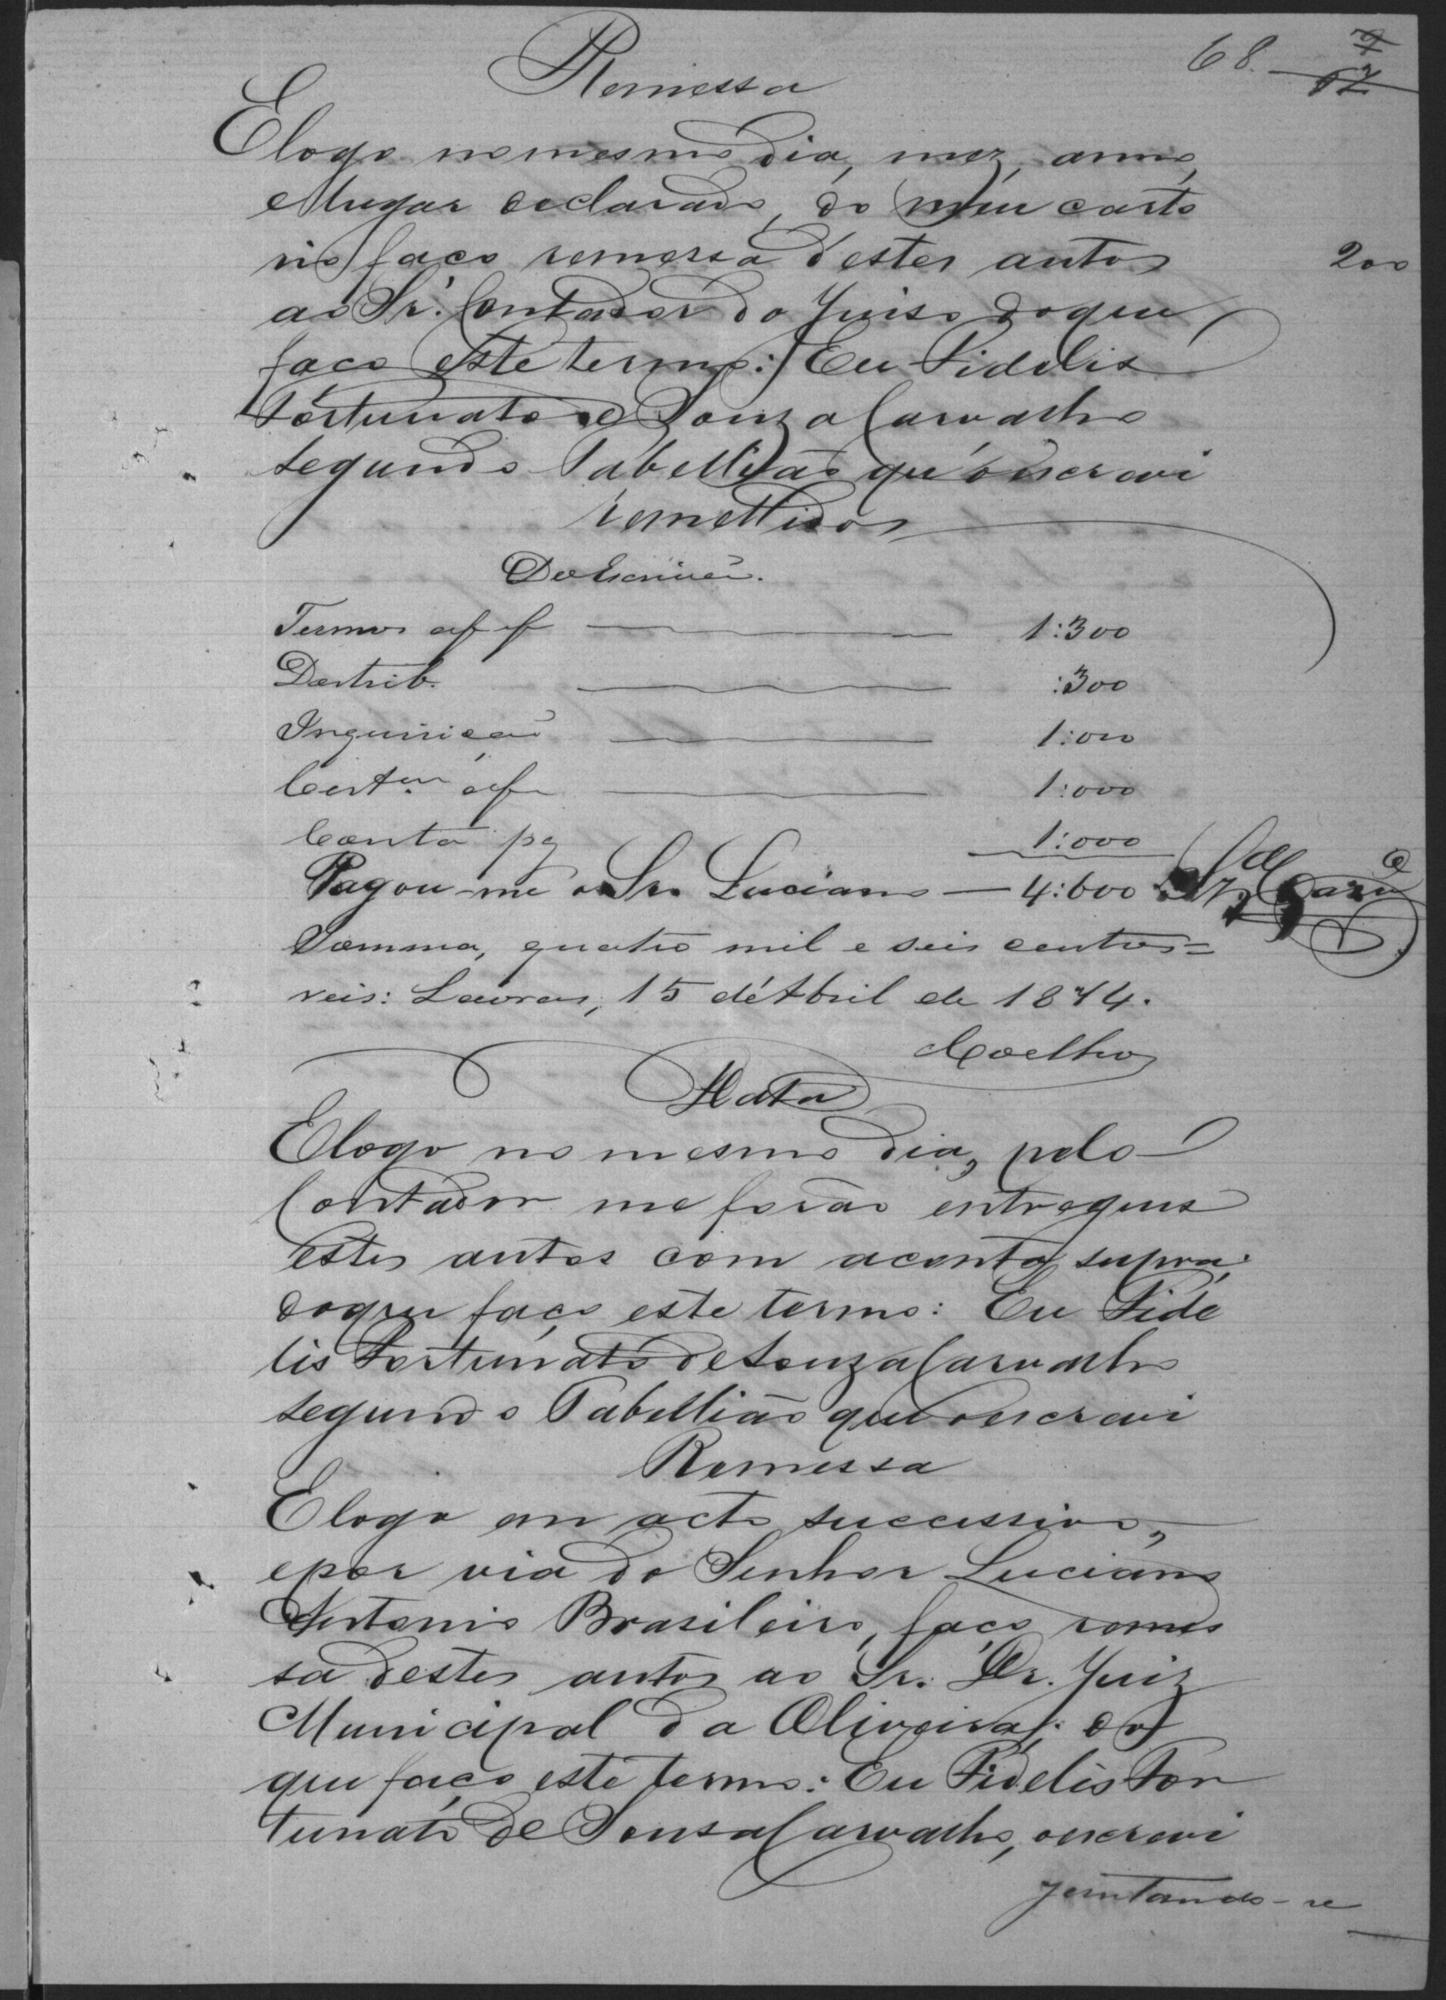 68.
Remessa
E logo no mesmo dia, mez, anno,
e lugar declarado, do meu carto
rio faco remessa d'estes autos
200
ao Sr. Contador do Juiso do que
faco este termo: Eu Fidelis
Fortunato de Souza Carvalho
segundo Tabellião que o escrevi
remettidos
Do Escrivão.
Termos af f 1:300
Destrib. 300
Inquirição 1:000
Cert.am af 1:000
Conta pg 1:000
Pagou-me o Sr. Luciano — 4:600
Somma, quatro mil e seis centos=
reis: Lavras, 15 de Abril de 1874.
Coelho
Data
E logo no mesmo dia, pelo
Contador me forão entregues
estes autos com a conta supra:
do que faço este termo: Eu Fide
lis Fortunato de Souza Carvalho
segundo Tabellião que o escrevi
Remessa
E logo em acto successivo,
e por via do Senhor Luciano
Antonio Brasileiro, faço remes
sa destes autos ao Sr. Dr. Juiz
Municipal da Oliveira; do
que faço este termo: Eu Fidelis For
tunato de Sousa Carvalho, o escrevi
juntando-se